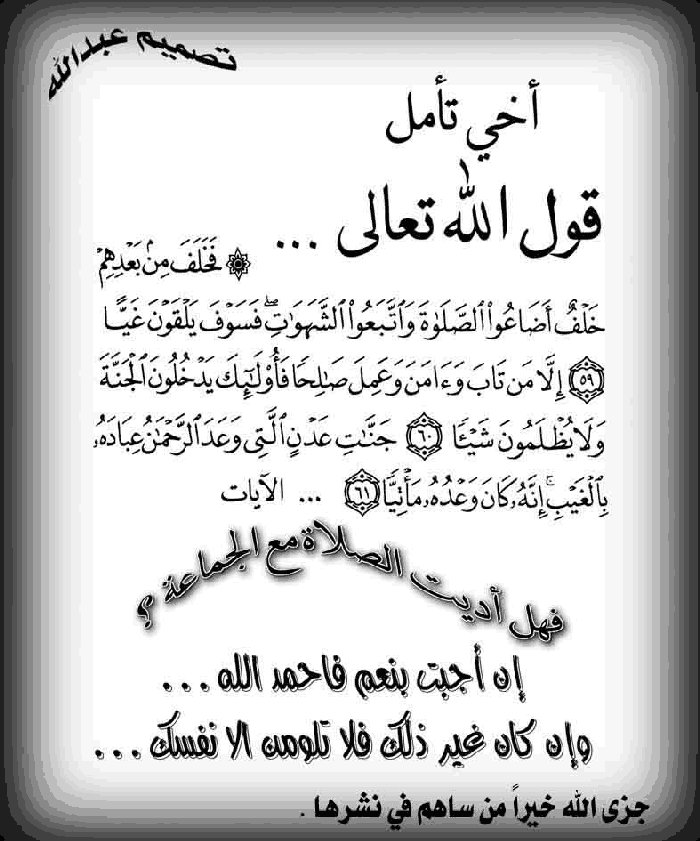 تصميم عبدالله
أخي تأمل
قول الله تعالى ...
۞ فَخَلَفَ مِنۢ بَعْدِهِمْ
خَلْفٌ أَضَاعُوا۟ ٱلصَّلَوٰةَ وَٱتَّبَعُوا۟ ٱلشَّهَوَٰتِ ۖ فَسَوْفَ يَلْقَوْنَ غَيًّا
٥٩ إِلَّا مَن تَابَ وَءَامَنَ وَعَمِلَ صَٰلِحًا فَأُو۟لَٰٓئِكَ يَدْخُلُونَ ٱلْجَنَّةَ
وَلَا يُظْلَمُونَ شَيْـًٔا ٦٠ جَنَّٰتِ عَدْنٍ ٱلَّتِى وَعَدَ ٱلرَّحْمَٰنُ عِبَادَهُۥ
بِٱلْغَيْبِ ۚ إِنَّهُۥ كَانَ وَعْدُهُۥ مَأْتِيًّا ٦١ ... الآيات
فهل أديت الصلاة مع الجماعة ؟
إن أجبت بنعم فاحمد الله ...
وإن كان غير ذلك فلا تلومن الا نفسك ...
جزى الله خيراً من ساهم في نشرها .